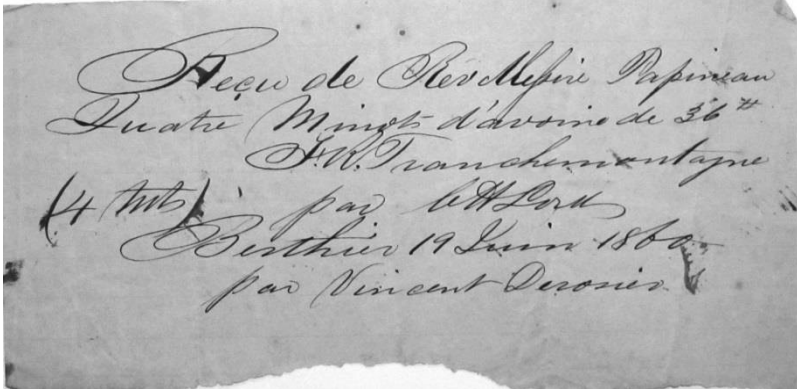 Reçu de Rév Messire Papineau
Quatre Minots d'avoine de 36 tt
F.R. Tranchemontagne
(4 Mts) par CH Lord
Berthier 19 Juin 1860
par Vincent Derosier